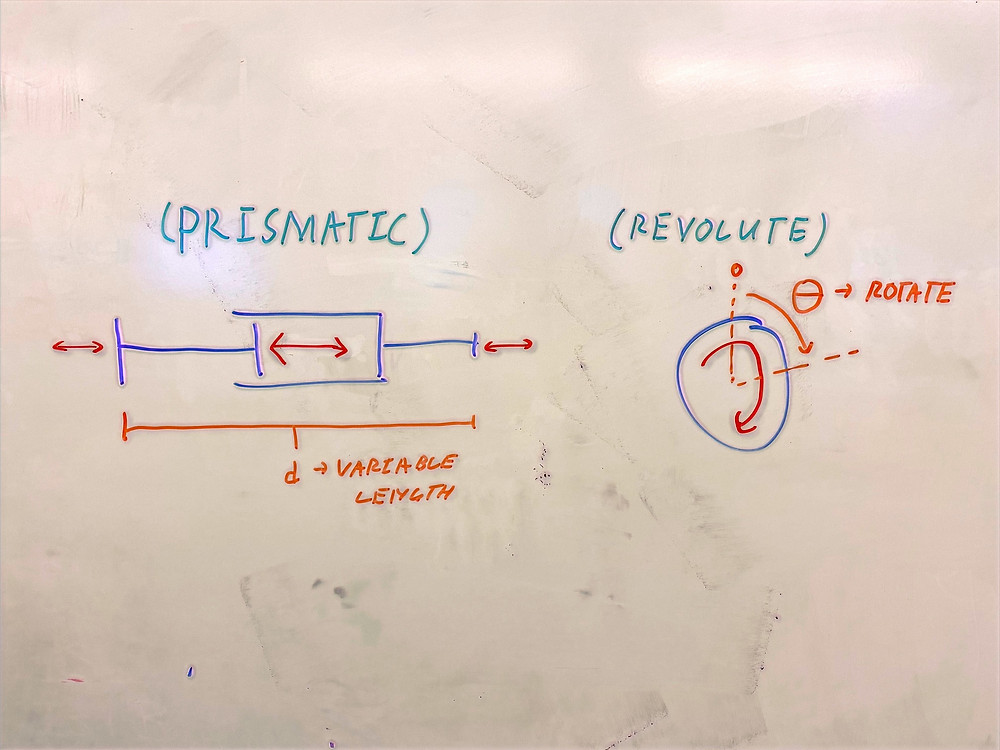 (PRISMATIC)
d → VARIABLE
LENGTH
(REVOLUTE)
θ → ROTATE